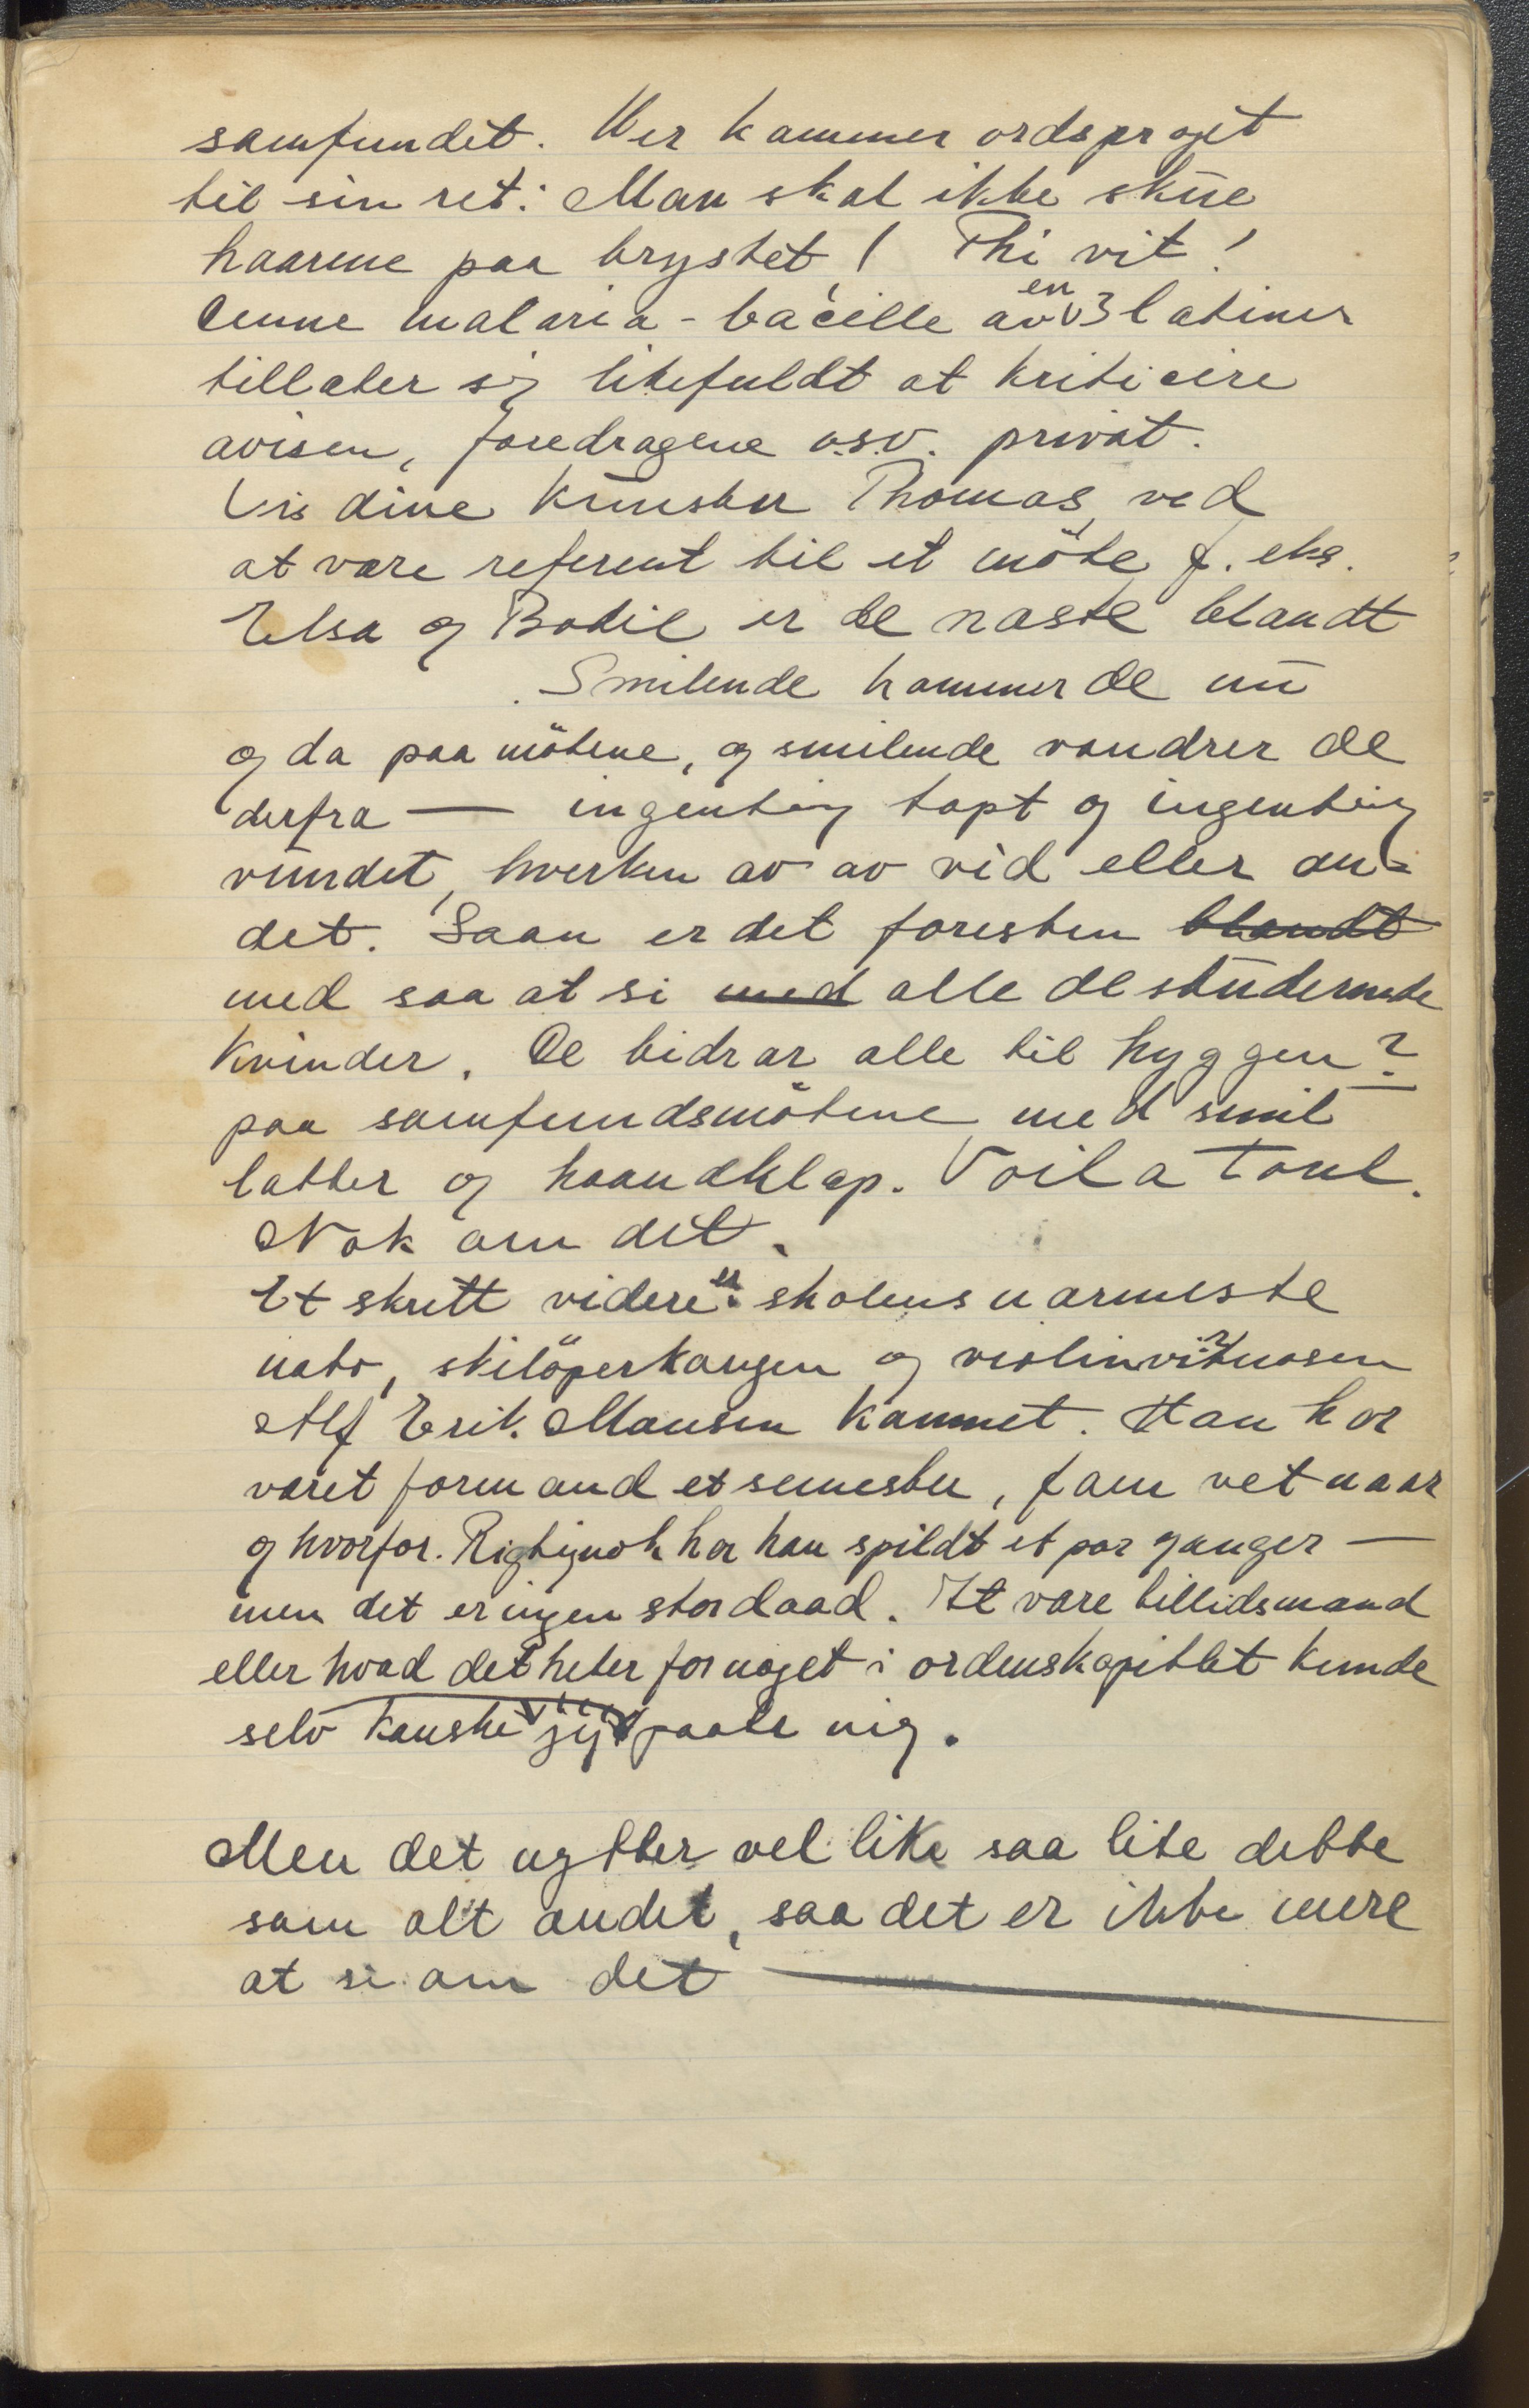 samfundet. Her kommer ordsproget
til sin ret: Man skal ikke skue
haarene paa brystet! Thi vit!
denne malaria-bacille av en 3 latiner
tillater sig likefuldt at kriticere
avisen, foredragene o.s.v. privat.
Vis dine kunster Thomas, ved
at være referent til et möte f. eks.
Elsa og Bodil er de næste blandt
Smilende kommer de nu
og da paa mötene, og smilende vandrer de
derfra — ingenting tapt og ingenting
vundet, hverken av av vid eller an-
det. Saan er det foresten blandt
med saa at si med alle de studerende
kvinder. De bidrar alle til hyggen?
paa samfundsmötene med smil
latter og haandklap. Voila tout.
Nok om det.
Et skritt videre er skolens varmeste
natv, skilöperkongen og violinvirtuosen
Alf Erik. Mausen kommet. Han har
været formand et semester, fam vet naar
og hvorfor. Rigtignok har han spildt et par ganger —
men det er ingen stordaad. At være tillidsmand
eller hvad det heter for noget i ordenskapitlet kunde
selv kanske jeg paata mig.
Men det nytter vel like saa lite dette
som alt andet, saa det er ikke mere
at si om det —